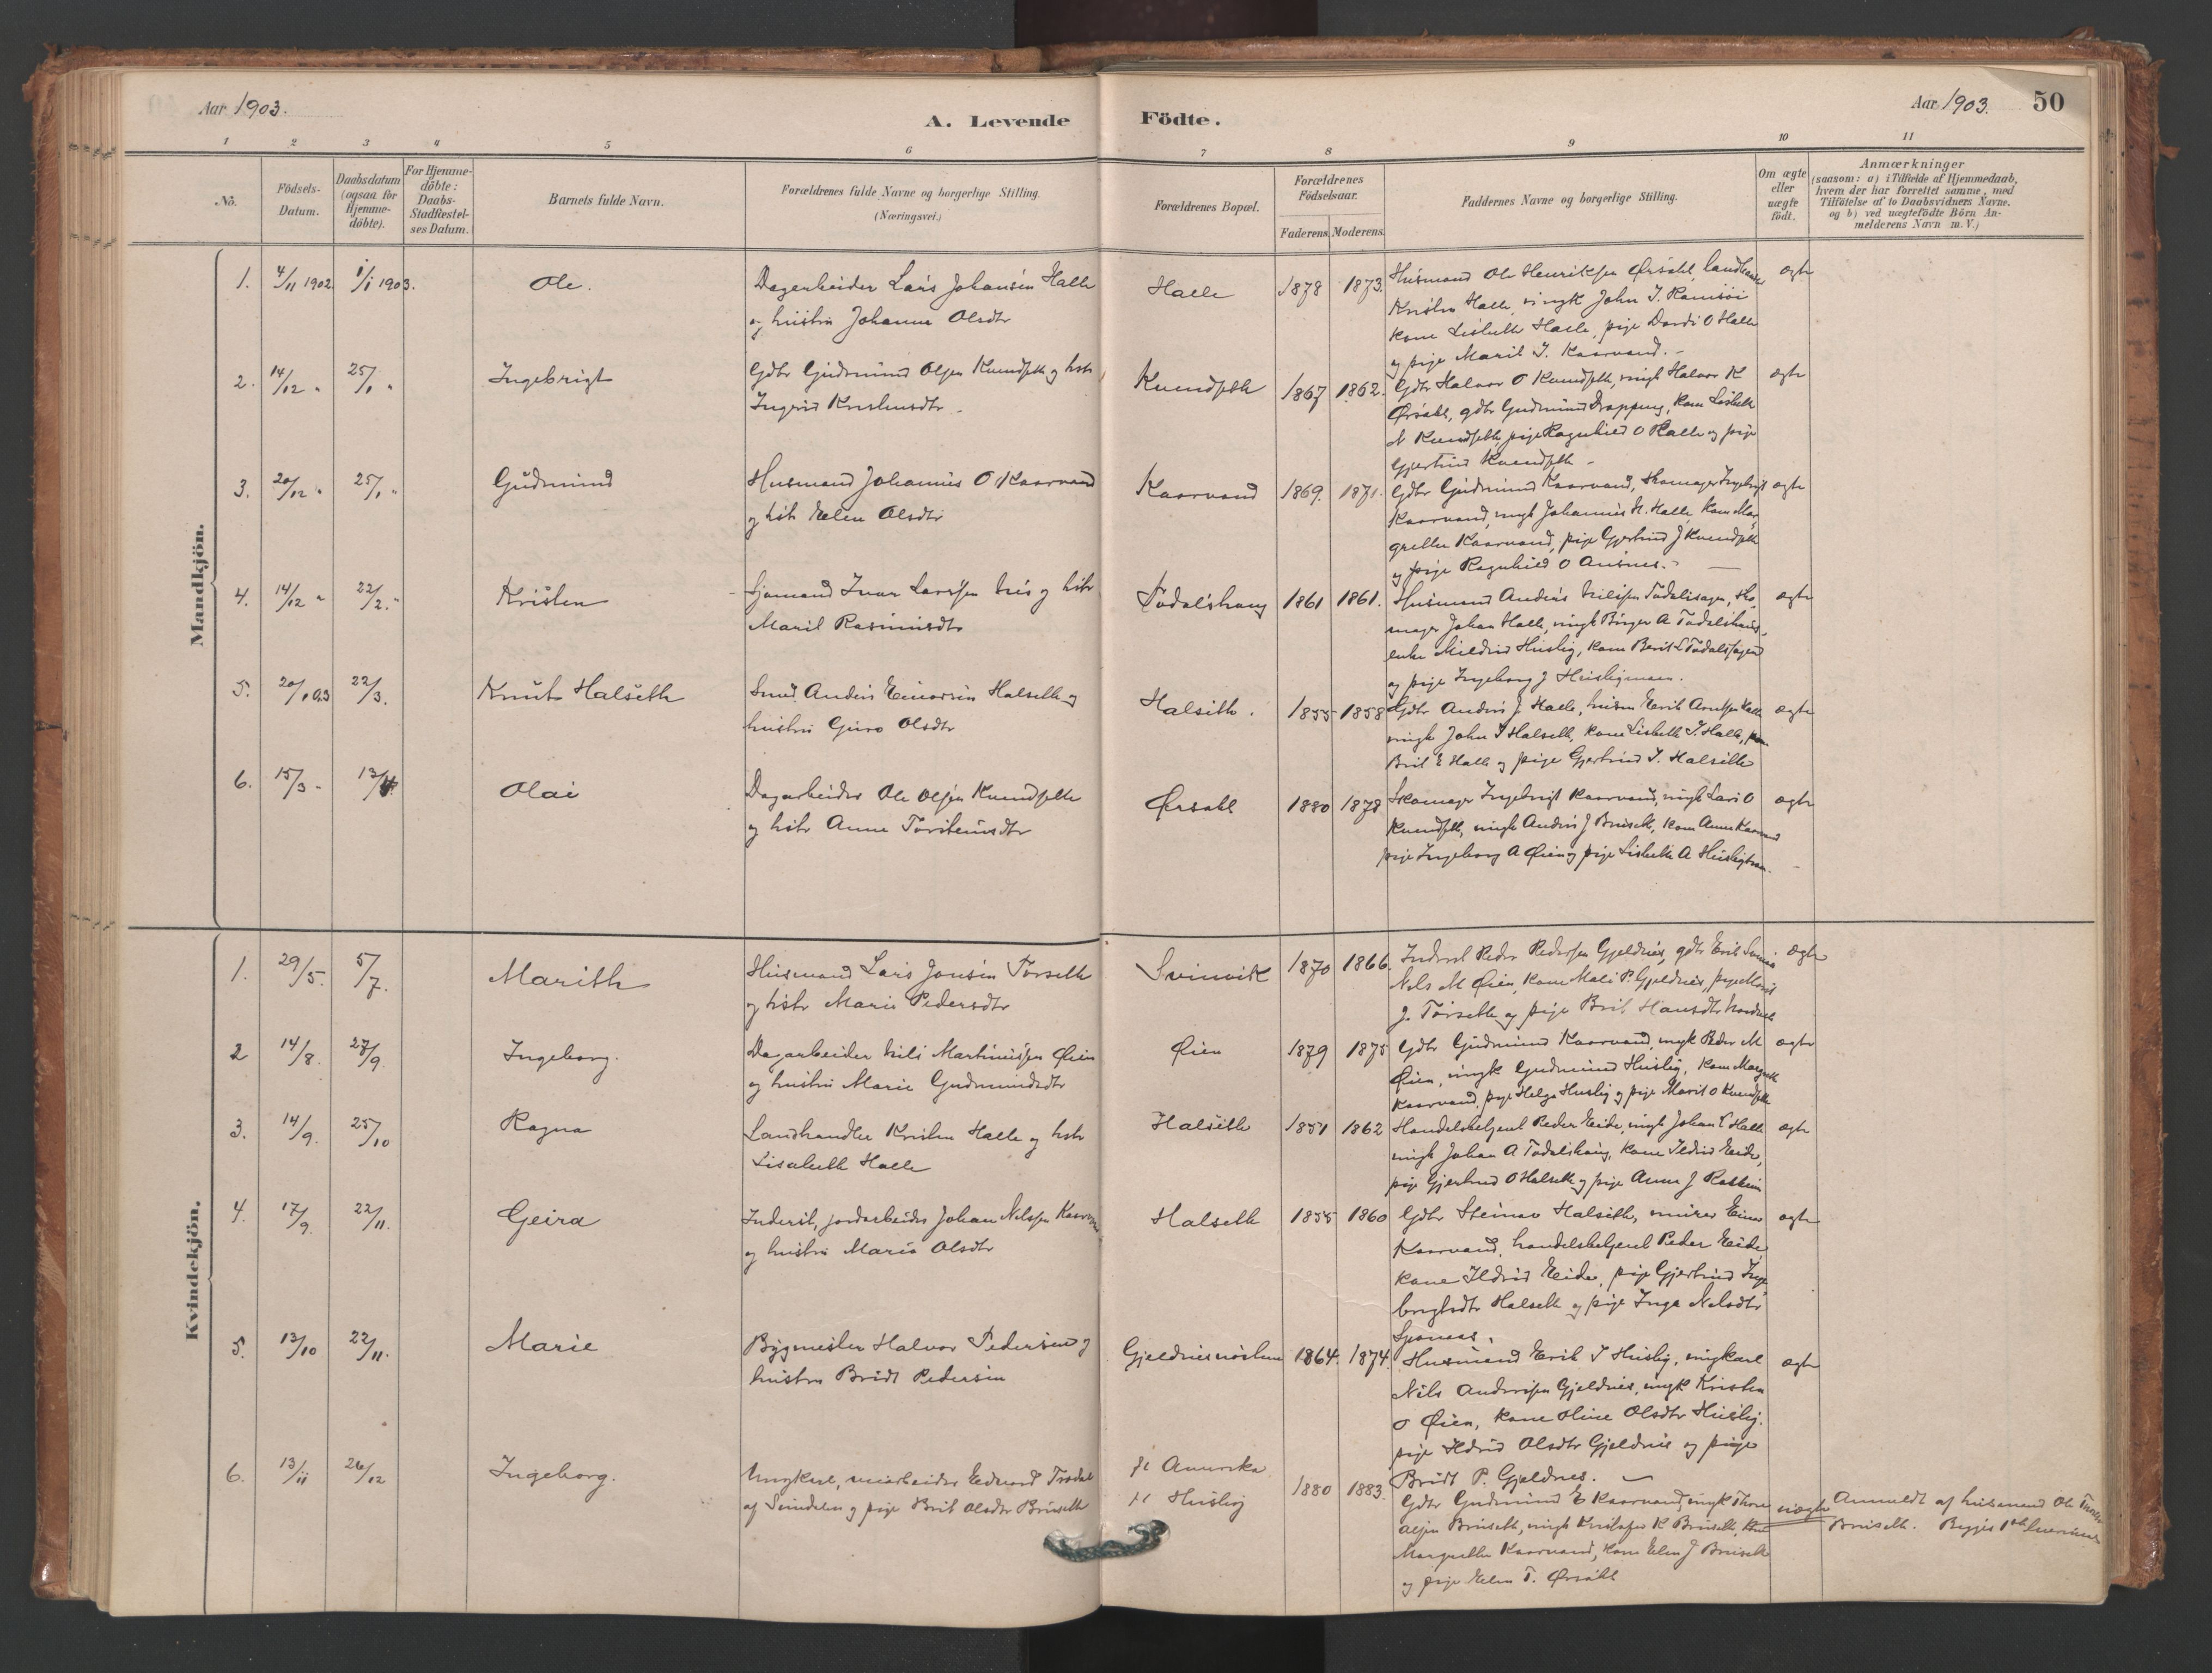 Aar 1903.
A. Levende Födte.
Aar 1903. 50
1 2 3 4 5 6 7 8 9 10 11
No.
Födsels-
Datum.
Daabsdatum
(ogsaa for
Hjemme-
döbte).
For Hjemme-
döbte:
Daabs-
Stadfæstel-
ses Datum.
Barnets fulde Navn.
Forældrenes fulde Navne og borgerlige Stilling.
(Næringsvei.)
Forældrenes Bopæl.
Forældrenes
Födselsaar.
Faderens. Moderens.
Faddernes Navne og borgerlige Stilling.
Om ægte
eller
uægte
födt.
Anmærkninger
(saasom: a) i Tilfælde af Hjemmedaab,
hvem der har forrettet samme, med
Tilföielse af to Daabsvidners Navne.
og b) ved uægtefödte Börn An-
melderens Navn m.V.)
Mandkjön.
1. 4/11 1902 1/1 1903. Ole.
Dagarbeider Lars Johansen Halle
og hustru Johanne Olsdtr
Halle 1878 1873.
Husmand Ole Henriksen Ørsahl, landhandler
Kristen Halle, ungk John I. Ramsöi
kone Lisbeth Halle, pige Dordi O Halle
og pige Marit I. Kaarvand. -
ægte
2. 14/12 " 25/1 " Ingebrigt
Gdbr Gudmund Olsen Kvendseth og hstr
Ingrid Kristensdtr.
Kvendseth 1867 1862.
Gdbr Halvor O Kvendseth, ungk Halvor K
Ørsahl, gdbr Gudmund Drøpping, kone Lisbeth
N Kvendseth, pige Ragnhild O Halle og pige
Gjertrud Kvendseth -
ægte
3. 20/12 " 25/1 " Gudmund
Husmand Johannes O Kaarvand
og hstr Elen Olsdtr
Kaarvand 1869. 1871.
Gdbr Gudmund Kaarvand, skomager Ingebrigt
Kaarvand, ungk Johannes H. Halle, kone Mar-
grethe Kaarvand, pige Gjertrud J Kvendseth
og pige Ragnhild O Ansnes. -
ægte
4. 14/12 " 22/2. " Kristen
Sjömand Ivar Larssen Nes og hstr
Marit Rasmusdtr
Todalshaug 1861 1861.
Husmand Anders Nilssen Todalssagen, sko-
mager Johan Halle, ungk Birger A Todalshaug,
enke Mildrid Huslig, kone Berit L Todalssagen
og pige Ingeborg J Husligmoen.
ægte
5. 20/1 03 22/3. Knut Halseth
Smed Anders Einarsen Halseth og
hustru Guro Olsdtr
Halseth. 1855 1858
Gdbr Anders J Halle, husm Erik Arntsen Halle
ungk John I Halseth, kone Lisbeth I. Halle,
Brit E Halle og pige Gjertrud I. Halseth
ægte
6. 15/3 - 13/4 Olai
Dagarbeider Ole Olsen Kvendseth
og hstr Anne Torsteinsdtr
Ørsahl 1880 1878
Skomager Ingebrigt Kaarvand, ungk Lars O
Kvendseth, ungk Anders J Bruseth, kone Anne Kaarvand
pige Ingeborg A Øien og pige Lisbeth A Husligtrøen.
ægte
Kvindekjön.
1. 29/5. 5/7. Marith
Husmand Lars Jonsen Torseth
og hstr Marie Pedersdtr
Svinvik 1870 1866.
Inderst Peder Pedersen Gjeldnes, gdbr Erik
Nils M Øien, kone Mali P. Gjeldnes, pige Marit
J. Torseth og pige Brit Hansdtr
ægte
2 14/8. 27/9. Ingeborg.
Dagarbeider Nils Martinussen Øien
og hustru Marie Gudmundsdtr
Øien 1879 1875
Gdbr Gudmund Kaarvand, ungk Peder M
Øien, ungk Gudmund Huslig, kone Margreth
Kaarvand, pige Helga Huslig og pige Marit O Kvendseth
ægte
3. 14/9. 25/10 Ragna
Landhandler Kristen Halle og hstr
Lisabeth Halle
Halseth 1851 1862
Handelsbetjent Peder Eide, ungk Johan E Halle
ungk Johan A Todalshaug, kone Ildrid Eide,
pige Gjertrud O Halseth og pige Anne J Rakheim
ægte
4. 17/9. 22/11. Geira
Inderst, jordarbeider Johan Nilssen Kaarvand
og hustru Maria Olsdtr
Halseth 1855 1860
Gdbr Steinar Halseth, murer Einar
Kaarvand, handelsbetjent Peder Eide,
kone Ildrid Eide, pige Gjertrud Inge-
brigtsdtr Halseth og pige Inga Nilsdtr
ægte
5. 13/10 22/11. Marie
Bygmester Halvor Pedersen og
hustru Brødt Pedersen
Gjeldnesnösten 1864. 1874.
Husmand Erik I Huslig, ungkarl
Nils Anderssen Gjeldnes, ungk Kristen
O Øien, kone Oline Olsdtr Huslig,
pige Ildrid Olsdtr Gjeldnes og pige
Brødt P. Gjeldnes. -
ægte
6. 13/11 26/12 Ingeborg.
Ungkarl, minearbeider Edvard Trødal
af Surndalen og pige Brit Olsdtr Bruseth
Amerika
Huslig
1880 1883.
Gdbr Gudmund E Kaarvand, ungk Thore
Olsen Bruseth, ungk Kristofer K Bruseth, kone
Margrethe Kaarvand, kone Elen J Bruseth
og pige Elen T. Ørsahl
uægte
Anmeldt af husmand Ole
Bruseth. Begges 1ste